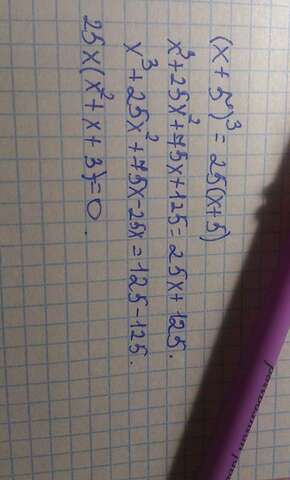 (x + 5)³ = 25(x+5)
x³ + 25x² + 75x + 125 = 25x + 125.
x³ + 25x² + 75x - 25x = 125 - 125.
25x(x² + x + 3) = 0.